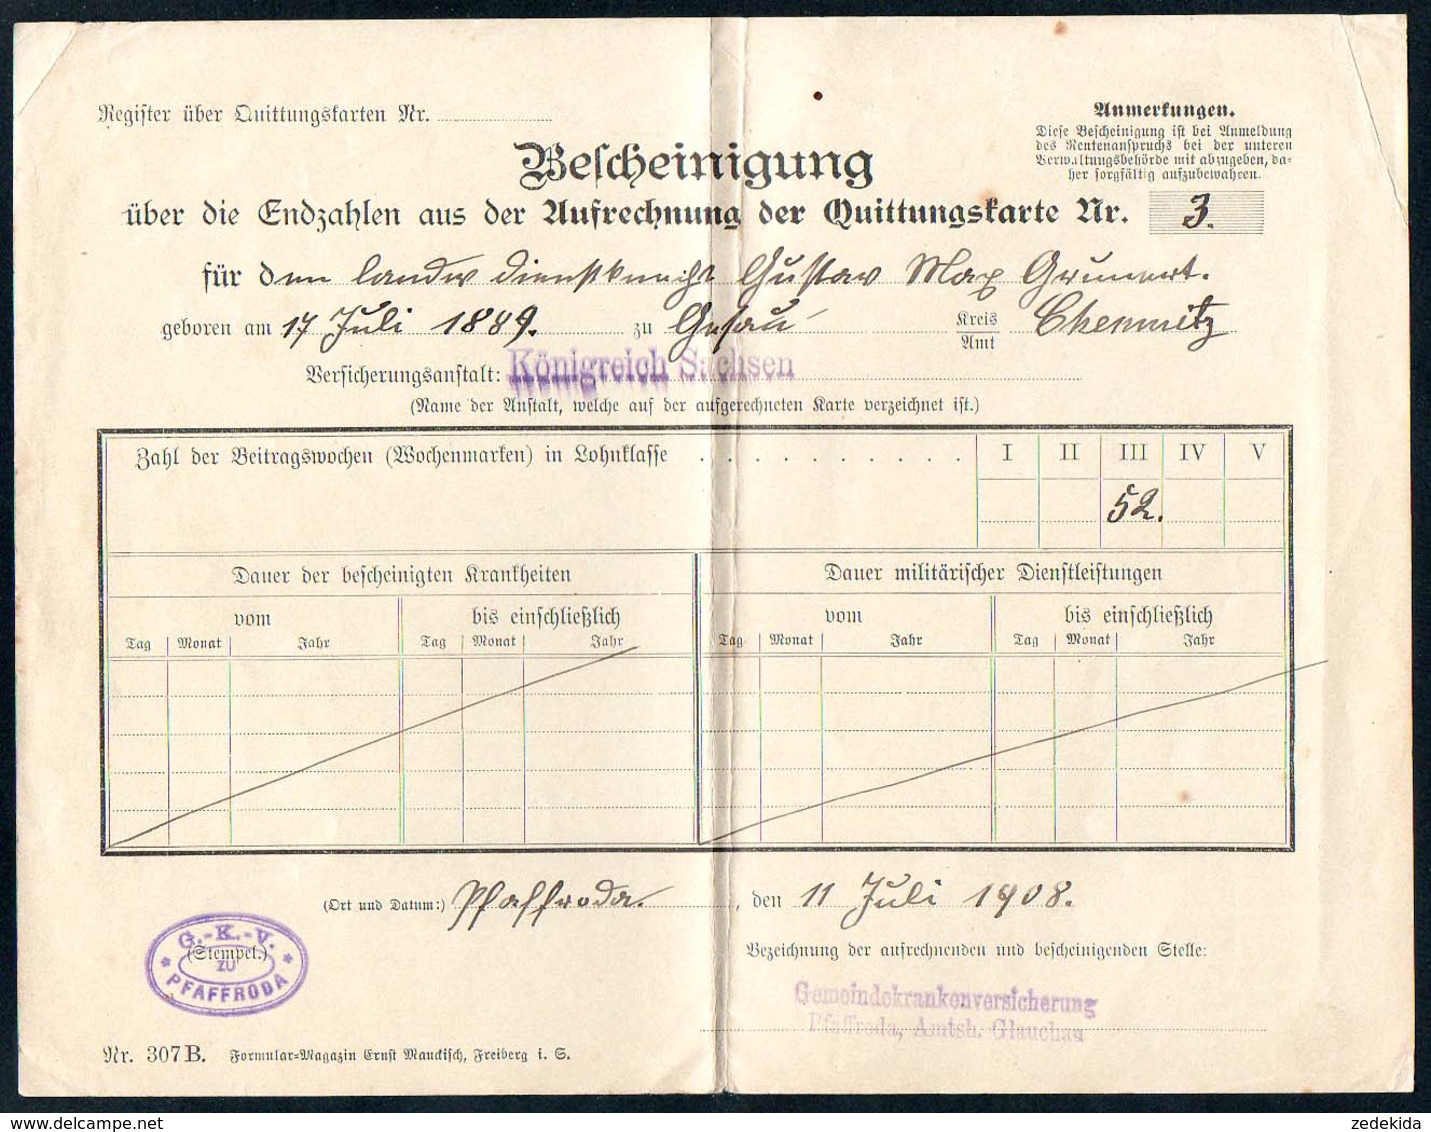 Register über Quittungskarten Nr.
Anmerkungen.
Diese Bescheinigung ist bei Anmeldung
des Rentenanspruchs bei der unteren
Verwaltungsbehörde mit abzugeben, da-
her sorgfältig aufzubewahren.
Bescheinigung
über die Endzahlen aus der Aufrechnung der Quittungskarte Nr. 3.
für den landw Dienstknecht Gustav Max Grunert.
geboren am 17 Juli 1889. zu Gesau Kreis Amt Chemnitz
Versicherungsanstalt: Königreich Sachsen
(Name der Anstalt, welche auf der aufgerechneten Karte verzeichnet ist.)
Zahl der Beitragswochen (Wochenmarken) in Lohnklasse . . . . . . . . . . I II III IV V
52.
Dauer der bescheinigten Krankheiten Dauer militärischer Dienstleistungen
vom bis einschließlich vom bis einschließlich
Tag Monat Jahr Tag Monat Jahr Tag Monat Jahr Tag Monat Jahr
(Ort und Datum:) Pfaffroda. , den 11 Juli 1908.
G.-K.-V.
(Stempel.)
ZU
* PFAFFRODA *
Bezeichnung der aufrechnenden und bescheinigenden Stelle:
Gemeindekrankenversicherung
Pfaffroda, Amtsh. Glauchau
Nr. 307B. Formular-Magazin Ernst Mauckisch, Freiberg i. S.
zedekida
www.delcampe.net